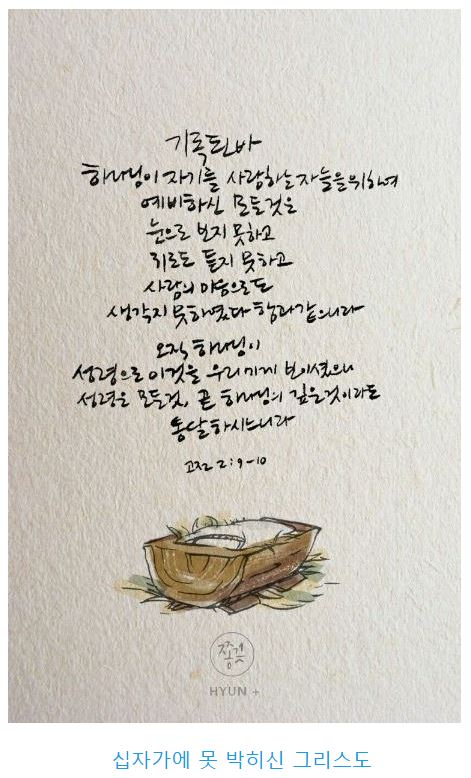 기록된바
하나님이 자기를 사랑하는 자들을 위하여
예비하신 모든것은
눈으로 보지 못하고
귀로도 듣지 못하고
사람의 마음으로도
생각지 못하였다 함과 같으니라
오직 하나님이
성령으로 이것을 우리에게 보이셨으니
성령은 모든것, 곧 하나님의 깊은것이라도
통달하시느니라
고전 2:9-10
HYUN +
십자가에 못 박히신 그리스도